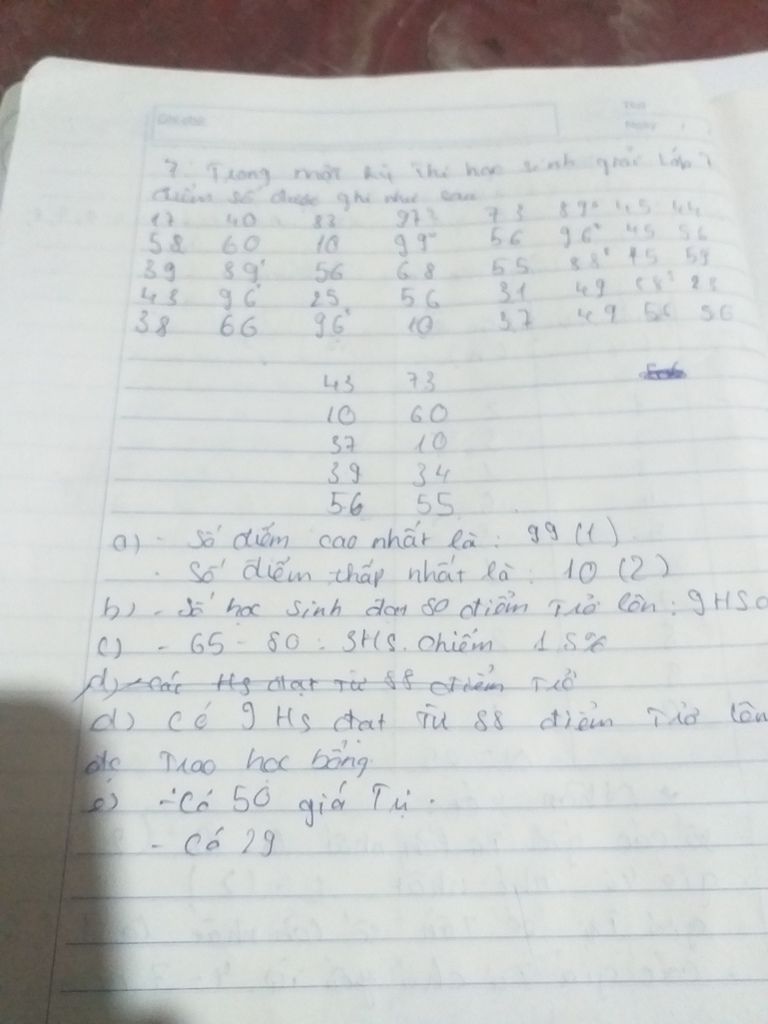 7. Trong một kỳ thi học sinh giỏi lớp 7
điểm số được ghi như sau
17 40 83 97 73 89 45 44
58 60 10 99 56 96 45 56
39 89 56 68 55 88 15 59
43 96 25 56 31 49 88 23
38 66 96 10 37 49 56 56
43 73
10 60
37 10
39 34
56 55
a) - Số điểm cao nhất là : 99 (1)
- Số điểm thấp nhất là : 10 (2)
b) - Số học sinh đạt 80 điểm Trở lên : 9HS
c) - 65 - 80 : 3HS. chiếm 1.5%
d) - các Hs đạt từ 88 điểm Trở
d) Có 9 Hs đạt Từ 88 điểm Trở lên
đc Trao học bổng
e) - Có 50 giá Trị.
- Có 29